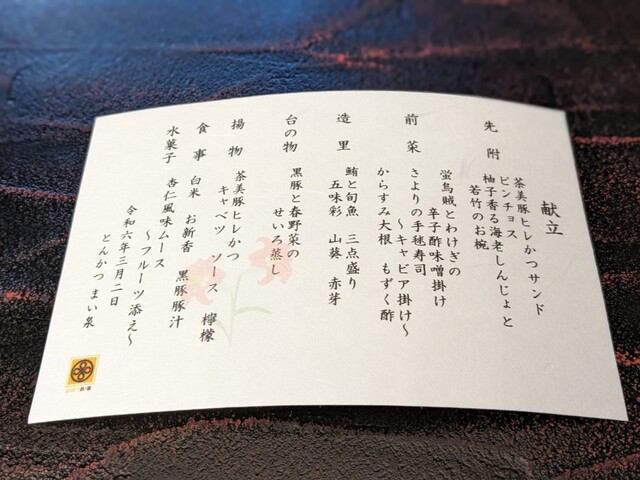 献立
先附
茶美豚ヒレかつサンド
ピンチョス
柚子香る海老しんじょと
若竹のお椀
前菜
蛍烏賊とわけぎの
辛子酢味噌掛け
さよりの手毬寿司
～キャビア掛け～
からすみ大根 もずく酢
造里
鮪と旬魚 三点盛り
五味彩 山葵 赤芽
台の物
黒豚と春野菜の
せいろ蒸し
揚物
茶美豚ヒレかつ
キャベツ ソース 檸檬
食事 白米 お新香 黒豚豚汁
水菓子 杏仁風味ムース
～フルーツ添え～
令和六年三月二日
とんかつまい泉